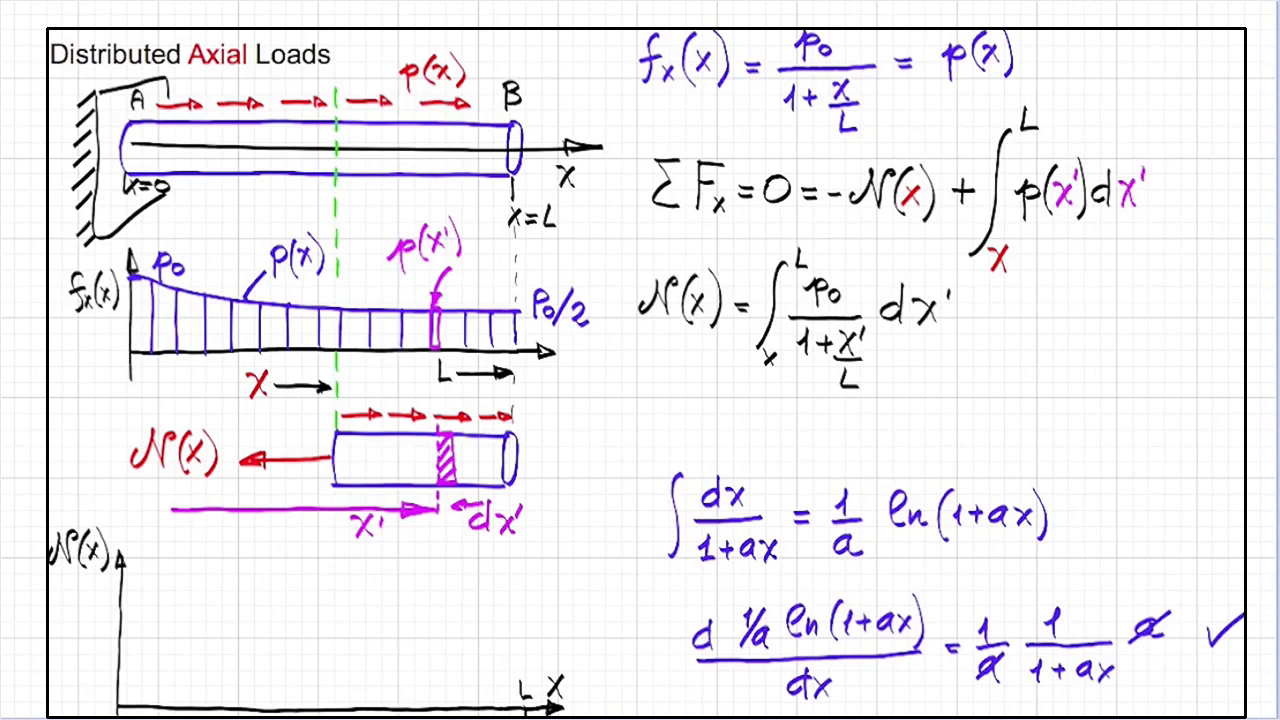 Distributed Axial Loads
p(x)
A
B
x=0
x
x=L
f_x(x)
p₀
p(x)
p(x')
p₀/2
x
L
N(x)
x'
dx'
N(x)
L
x
f_x(x) = p₀/(1+x/L) = p(x)
ΣF_x = 0 = -N(x) + ∫_x^L p(x')dx'
N(x) = ∫_x^L p₀/(1+x'/L) dx'
∫ dx/(1+ax) = 1/a ln(1+ax)
d 1/a ln(1+ax)/dx = 1/a 1/(1+ax) a ✓